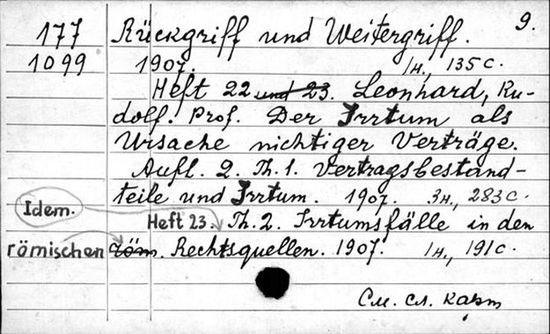 9.
177 Rückgriff und Weitergriff.
1099 1907. 1н, 135 с.
Heft 22 und 23. Leonhard, Ru-
dolf. Prof. Der Irrtum als
Ursache nichtiger Verträge.
Aufl. 2. Th. 1. Vertragsbestand-
teile und Irrtum. 1907. 3н, 283 с.
Idem. Heft 23. Th. 2. Irrtumsfälle in den
römischen röm. Rechtsquellen. 1907. 1н, 191 с.
См. сл. карт